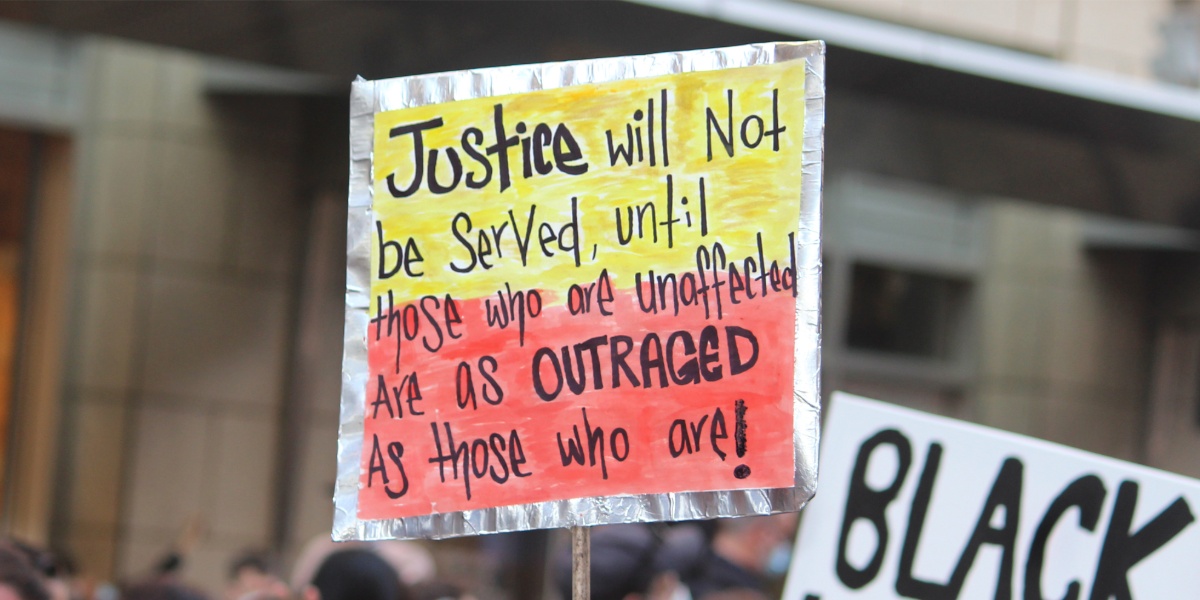 Justice will Not
be Served, until
those who are unaffected
Are as OUTRAGED
As those who are!
BLACK